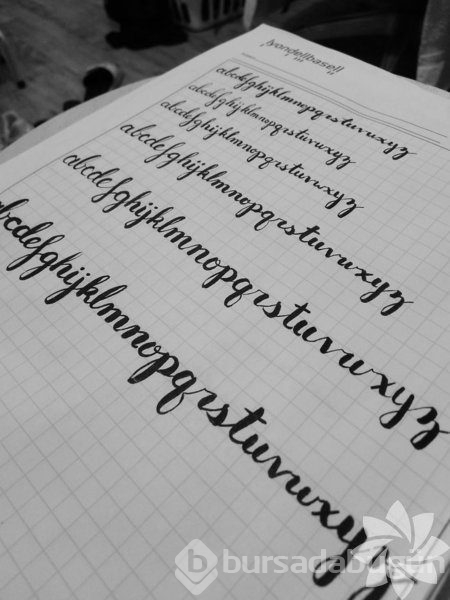 lyondellbasell
abcdefghijklmnopqrstuvwxyz
abcdefghijklmnopqrstuvwxyz
abcdefghijklmnopqrstuvwxyz
abcdefghijklmnopqrstuvwxyz
abcdefghijklmnopqrstuvwxyz
abcdefghijklmnopqrstuvwxyz
bursadabugün